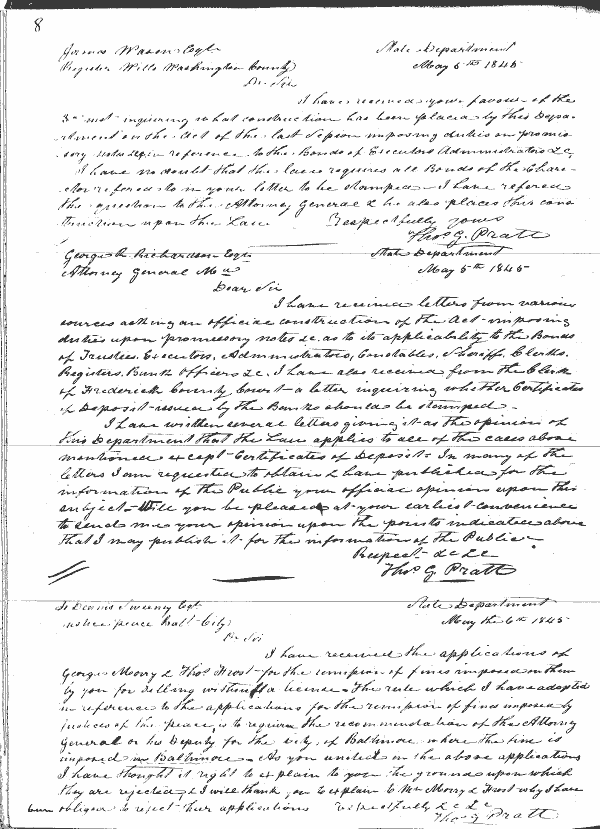 8
James Wason Esqr State Department
Register Wills Washington County May 5th 1845
Dr Sir
I have received your favour of the
3d inst inquiring what construction has been placed by this Depa-
rtment on the Act of the last Session imposing duties on promis-
sory notes &c in reference to the Bonds of Executors Administrators &c
I have no doubt that the Law requires all Bonds of the Chara-
cter refered to in your letter to be stamped - I have refered
the question to the Attorney General & he also places this cons
truction upon the Law Respectfully yours
Thos G. Pratt
George R. Richardson Esqr State Department
Attorney General Md May 5th 1845
Dear Sir
I have received letters from various
sources asking an official construction of the Act imposing
duties upon promissory notes &c. as to its applicability to the Bonds
of Trustees, Executors, Administrators, Constables, Sheriff, Clerks,
Registers, Bank Officers &c. I have also received from the Clerk
of Frederick County Court a letter inquiring whether Certificates
of Deposit issued by the Banks should be stamped -
I have written several letters giving it as the opinion of
this Department that the Law applies to all of the cases above
mentioned except Certificates of Deposit - In many of the
letters I am requested to obtain & have published for the
information of the Public your official opinion upon this
subject - Will you be pleased at your earliest convenience
to send me your opinion upon the points indicated above
that I may publish it for the information of the Public -
Respect &c &c
Thos G Pratt
To Dennis Sweeny Esqr State Department
Justice peace Balt City May the 6th 1845
Dr Sir
I have received the applications of
George Morry & Thos Frost for the remission of fines imposed on them
by you for selling without a license. The rule which I have adopted
in reference to the applications for the remission of fines imposed by
justices of the peace, is to require the recommendation of the Attorney
General or his Deputy for the city of Baltimore where the fine is
imposed in Baltimore. As you united in the above applications
I have thought it right to explain to you the ground upon which
they are rejected & I will thank you to explain to Mr Morry & Frost why I have
been obliged to reject their applications respectfully &c &c
Thos G Pratt